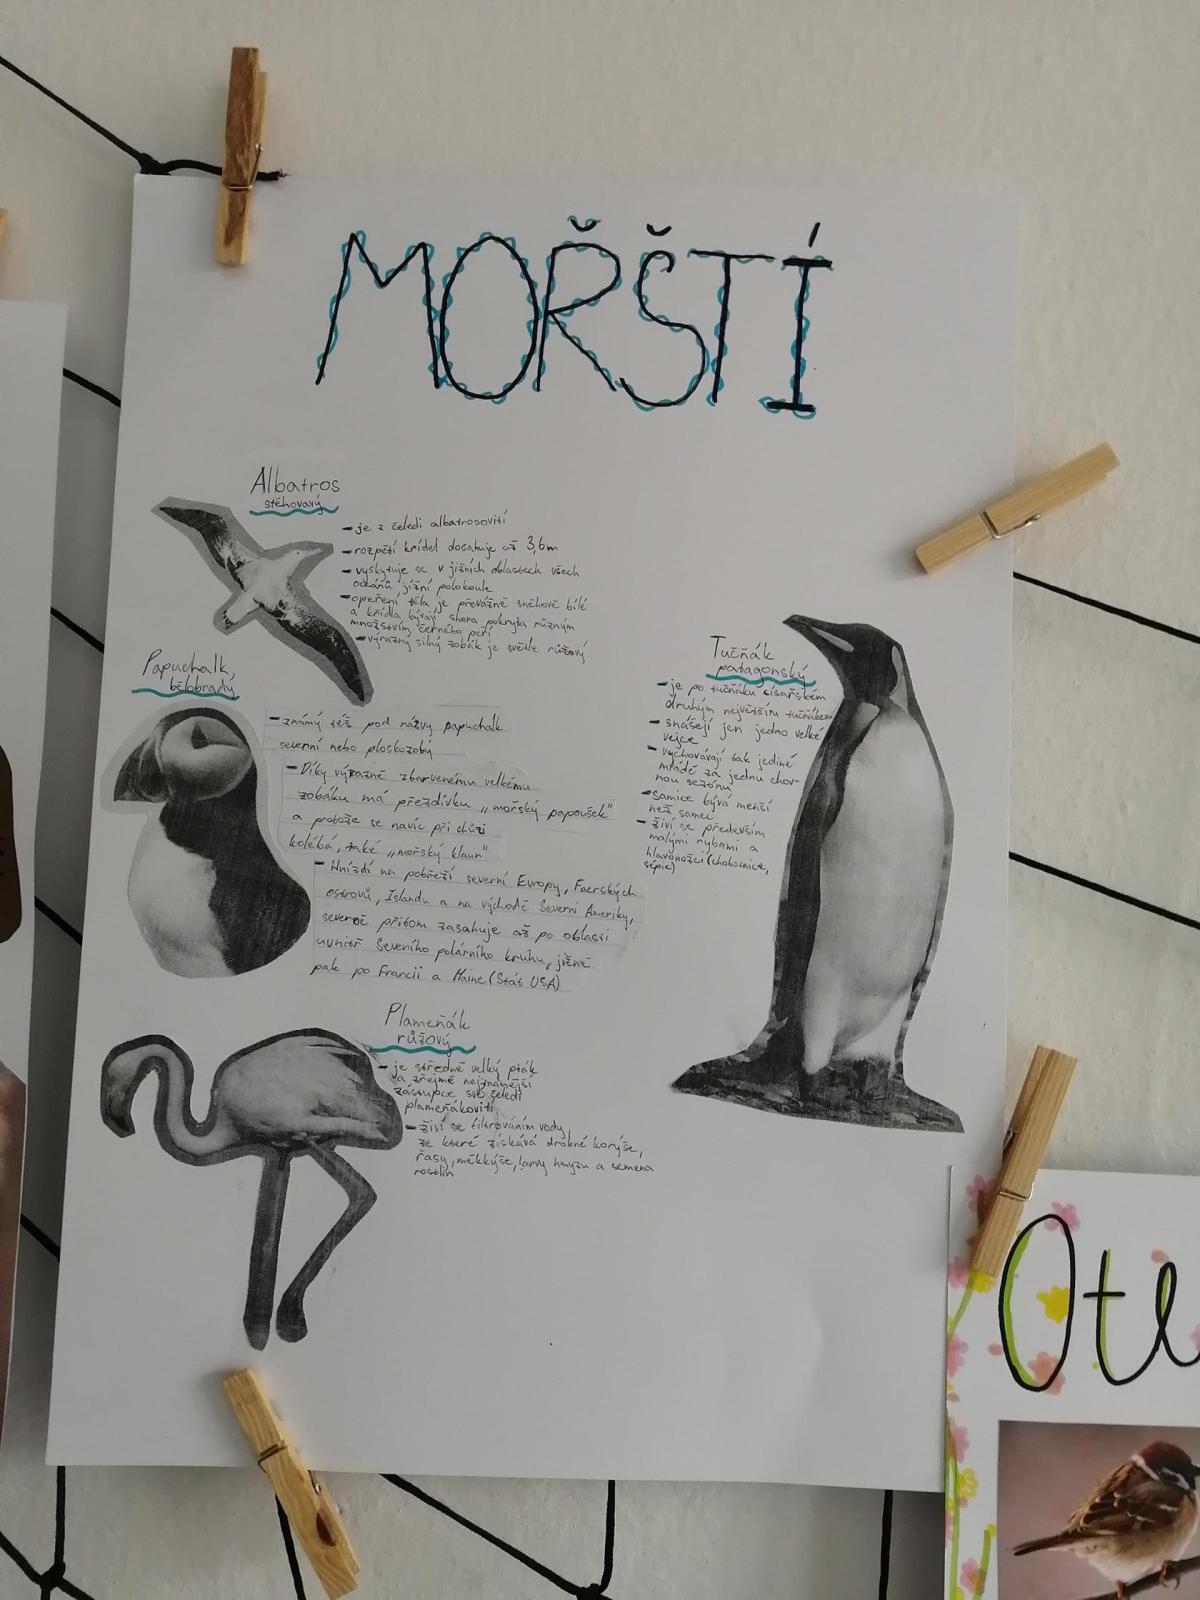 MOŘŠTÍ
Albatros
stěhovavý
- je z čeledi albatrosovití
- rozpětí křídel dosahuje až 3,6m
- vyskytuje se v jižních oblastech všech
oceánů jižní polokoule
- opeření těla je převážně sněhově bílé
a křídla bývají shora pokryta různým
množstvím černého peří
- výrazný silný zobák je světle růžový
Papuchalk,
bělobradý
- známý též pod názvy papuchalk
severní nebo ploskozobý
- Díky výrazně zbarvenému velkému
zobáku má přezdívku „mořský papoušek"
a protože se navíc při chůzi
kolébá, také „mořský klaun"
- Hnízdí na pobřeží severní Evropy, Faerských
ostrovů, Islandu a na východě Severní Ameriky,
severně přitom zasahuje až po oblasti
uvnitř Severního polárního kruhu, jižně
pak po Francii a Maine (Stát USA)
Tučňák
patagonský
- je po tučňáku císařském
druhým největším tučňákem
- snášejí jen jedno velké
vejce
- vychovávají tak jediné
mládě za jednu chov-
nou sezónu
- samice bývá menší
než samec
- živí se především
malými rybami a
hlavonožci (chobotnice,
sépie)
Plameňák
růžový
- je středně velký pták
a zřejmě nejznámější
zástupce své čeledi
plameňákovití
- živí se filtrováním vody
ze které získává drobné korýše,
řasy, měkkýše, larvy hmyzu a semena
rostlin